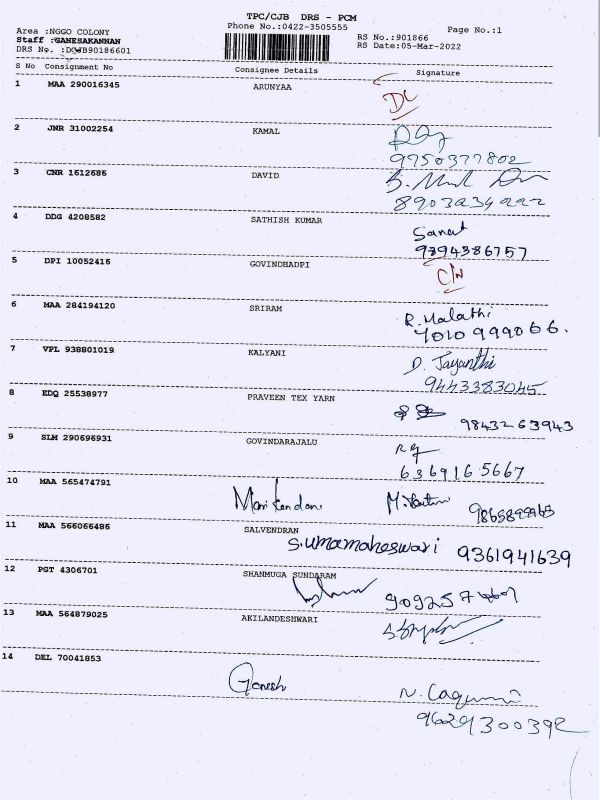 TPC/CJB DRS - PCM
Phone No.:0422-3505555
Page No.:1
Area :NGGO COLONY
Staff :GANESAKANNAN
DRS No. :DCJB90186601
RS No.:901866
RS Date:05-Mar-2022
S No Consignment No Consignee Details Signature
1 MAA 290016345 ARUNYAA
DL
2 JNR 31002254 KAMAL
9750377802
3 CNR 1612686 DAVID
8903234222
4 DDG 4208582 SATHISH KUMAR
Sanat
9894386757
5 DPI 10052416 GOVINDHADPI
C/N
6 MAA 284194120 SRIRAM
R. Malathi
7010999066.
7 VPL 938801019 KALYANI
D. Jayanthi
9443383045
8 EDQ 25538977 PRAVEEN TEX YARN
9843263943
9 SLM 290696931 GOVINDARAJALU
6369165667
10 MAA 565474791
Manikandan
11 MAA 566066486 SALVENDRAN
S.umamaheswari 9361941639
12 PGT 4306701 SHANMUGA SUNDARAM
13 MAA 564879025 AKILANDESHWARI
14 DEL 70041853
Ganesh
9629300392